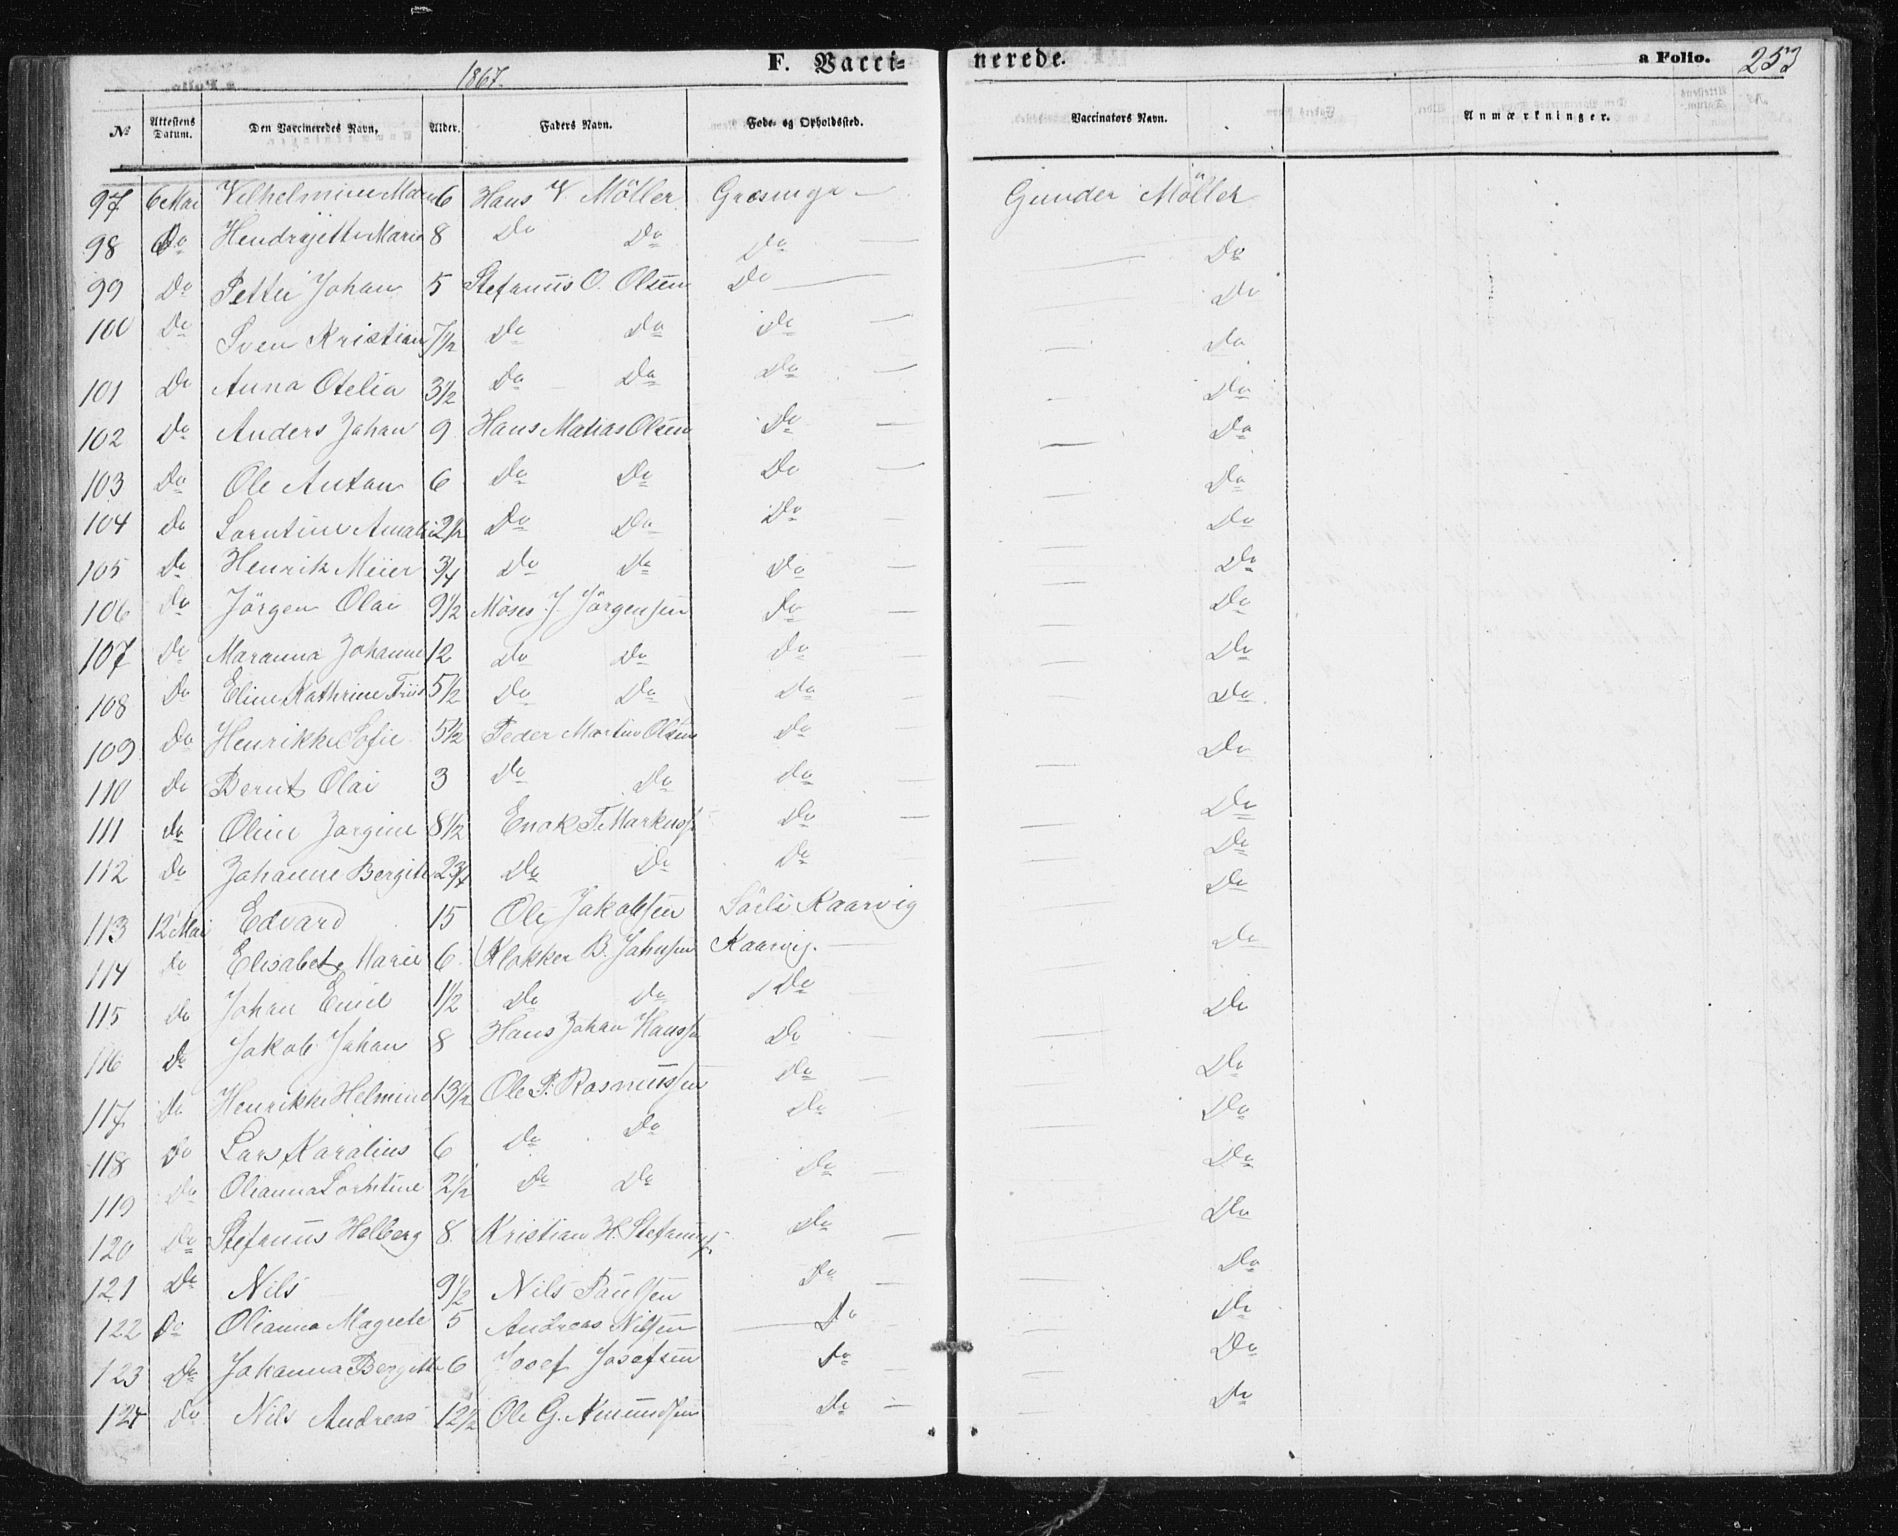 1867. F. Vacci- nerede. a Folio. 253
№ Attestens Datum. Den Vaccineredes Navn, Alder. Faders Navn. Føde- og Opholdssted. Vaccinators Navn. Anmærkninger.
97 6 Mai Vilhelmine 6 Hans V. Møller Græsinge Gunder Møller
98 Do Hendrijette Maria 8 Do Do Do Do
99 Do Petter Johan 5 Stefanus O. Olsen Do Do
100 Do Sven Kristian 7½ Do Do Do Do
101 Do Anna Otelia 3½ Do Do Do Do
102 Do Anders Johan 9 Hans Matias Olsen Do Do
103 Do Ole Antan 6 Do Do Do Do
104 Do Lorntine Amali 2½ Do Do Do Do
105 Do Henrik Meier ¾ Do Do Do Do
106 Do Jörgen Olai 9½ Moses J. Jörgensen Do Do
107 Do Maranna Johanne 12 Do Do Do Do
108 Do Eline Kathrine 5½ Do Do Do Do
109 Do Henrikke Sofie 5½ Peder Martin Olsen Do Do
110 Do Bernt Olai 3 Do Do Do Do
111 Do Oline Jorgine 8½ Enok T. Markuss. Do Do
112 Do Johanne Bergite 2¾ Do Do Do Do
113 12 Mai Edvard 15 Ole Jakobsen Sörli Kaarvig Do
114 Do Elisabet Marie 6 Klokker B. Johnsen Kaarvig. Do
115 Do Johan Emil 1½ Do Do Do Do
116 Do Jakob Johan 8 Hans Johan Hanss. Do Do
117 Do Henrikke Helmine 13½ Ole P. Rasmussen Do Do
118 Do Lars Karolius 6 Do Do Do Do
119 Do Olianna Lorntine 2½ Do Do Do Do
120 Do Stefanus Holberg 8 Kristian H. Stefanuss. Do Do
121 Do Nils 9½ Nils Paulsen Do Do
122 Do Olianna Magrete 5 Andreas Nilsen Do Do
123 Do Johanna Bergitte 6 Josef Josefsen Do Do
124 Do Nils Andreas 12½ Ole G. Amundsen Do Do